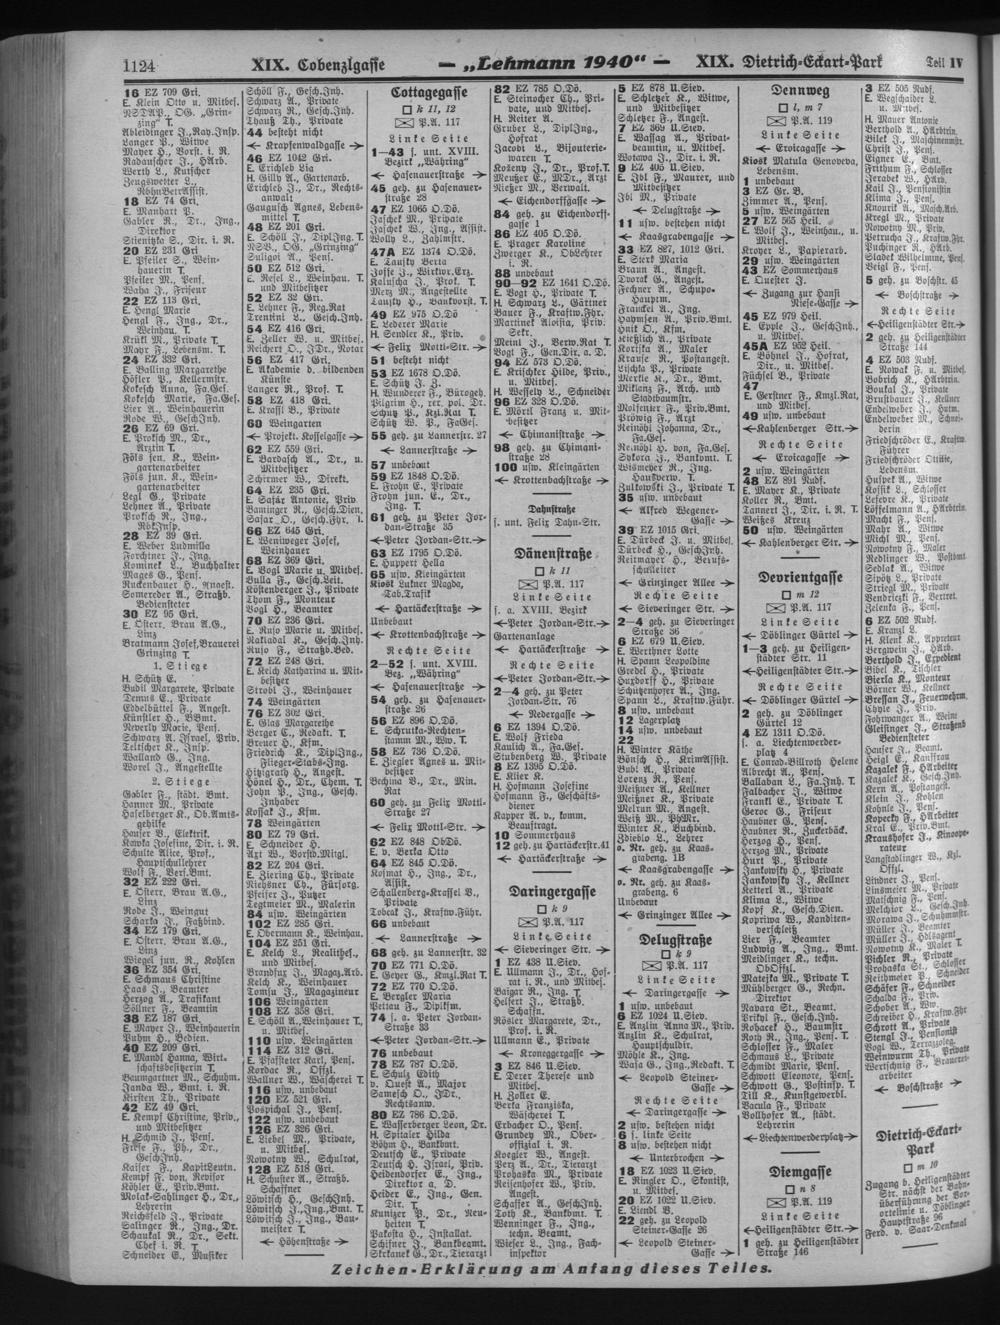 1124
XIX. Cobenzlgasse
— „Lehmann 1940“ —
XIX. Dietrich-Eckart-Park
Teil IV
16 EZ 709 Gri.
E. Klein Otto u. Mitbes.
NSDAP., OG. „Grinzing“ T.
Langer P., Witwe
Mayer H., Vorst. i. R.
Radauscher J., HArb.
Werth L., Kutscher
18 EZ 74 Gri.
E. Manhart P.
Gabler R., Dr., Ing.,
Direktor
Stienitzka S., Dir. i. R.
20 EZ 231 Gri.
E. Pfeiler S., Weinhauerin T.
Pfeiler M., Pens.
Waha J., Friseur
22 EZ 113 Gri.
E. Hengl Marie
Hengl F., Ing., Dr.,
Weinhau. T.
Krütl M., Private T.
Mayr F., Lebensm. T.
24 EZ 332 Gri.
E. Balling Margarethe
Höfler P., Kellermstr.
Kokesch Anna, Fa.Ges.
Kokesch Marie, Fa.Ges.
Lier A., Weinhauerin
Rode W., GeschInh.
26 EZ 69 Gri.
E. Proksch M., Dr.,
Ärztin T.
Föls jen. K., Weingartenarbeiter
Föls jun. K., Weingartenarbeiter
Legl G., Private
Lehner A., Private
Proksch R., Ing.,
28 EZ 39 Gri.
E. Weber Ludmilla
Forchtner J., Ing.
Kominek L., Buchhalter
Mages G., Pens.
Ruckenbauer H., Angest.
Somereder A., Straßb.
Bediensteter
30 EZ 95 Gri.
E. Österr. Brau A.G.,
Linz
Bratmann Josef, Brauerei
Grinzing T.
1. Stiege
H. Schütz E.
Budil Margarete, Private
Demus E., Private
Künstler H., BBmt.
Teltscher K., Insp.
Walland G., Ing.
Worel J., Angestellte
2. Stiege
Gabler F., städt. Bmt.
Hanner M., Private
Haselberger K., Ob.Amtsgehilfe
Hauser B., Elektrik.
Kawka Josefine, Dir. i. R.
Schulte Alice, Prof.,
Hauptschullehrer
Wolf F., Vers.Bmt.
32 EZ 222 Gri.
E. Österr. Brau A.G.,
Linz
Rode J., Weingut
Scharka J., Faßbind.
34 EZ 179 Gri.
E. Österr. Brau A.G.,
Linz
Wiegel jun. R., Kohlen
36 EZ 354 Gri.
E. Schmaus Christine
Haas J., Beamter
Herzog A., Trafikant
Söllner F., Beamtin
38 EZ 187 Gri.
E. Mayer J., Weinhauerin
Puhm H., Bedien.
40 EZ 209 Gri.
E. Mandl Hanna, Wirtschaftsbesitzerin T.
Baumgartner M., Schuhm.
Janda W., Bmt. i. R.
Kirsten Th., Private
42 EZ 49 Gri.
E. Kempf Christine, Priv.,
und Mitbesitzer
H. Schmid J., Pens.
Friese F., Ph., Dr.,
GeschInh.
Kaiser F., KapitLeutn.
Kempf F. von, Revisor
Köhler E., Priv.Bmt.
Molak-Sahlinger H., Dr.,
Lehrerin
Reichsfeld J., Private
Salinger R., Ing., Dr.
Schaukal R., Dr., Sekt.
Chef i. R. T.
Schneider E., Musiker
Schöll F., Gesch.Inh.
Schwarz A., Private
Schwarz R., Gesch.Inh.
Thauß Th., Private
44 besteht nicht
← Krapfenwaldgasse →
46 EZ 1042 Gri.
E. Erichleb Lia
H. Gilly A., Gartenarb.
Erichleb J., Dr., Rechtsanwalt
Gangusch Agnes, Lebensmittel T.
48 EZ 201 Gri.
E. Schöll J., DiplIng. T.
NSV., OG. „Grinzing“
Suligoi A., Pens.
50 EZ 512 Gri.
E. Resel L., Weinhau. T.
und Mitbesitzer
52 EZ 32 Gri.
E. Lehner F., Reg.Rat
Trentini L., Gesch.Inh.
54 EZ 416 Gri.
E. Zeller W. u. Mitbes.
Reichert O., JDr., Notar
56 EZ 417 Gri.
E. Akademie d. bildenden
Künste
Langer R., Prof. T.
58 EZ 418 Gri.
E. Krassl B., Private
60 Weingarten
← Projekt. Kosselgasse →
62 EZ 559 Gri.
E. Bardasch A., Dr., u.
Mitbesitzer
Schirmer W., Direkt.
64 EZ 235 Gri.
E. Safar Antonie, Priv.
Baminger R., Gesch.Dien.
Safar O., Gesch.Fhr. T.
66 EZ 645 Gri.
E. Weniweger Josef,
Weinhauer
68 EZ 369 Gri.
E. Bogl Marie u. Mitbes.
Bulla F., Gesch.Leit.
Köstenberger J., Private
Thom F., Monteur
Bogl H., Beamter
70 EZ 236 Gri.
E. Rufo Marie u. Mitbes.
Rakladal K., Gesch.Inh.
Rufo F., Straßb.Bed.
72 EZ 248 Gri.
E. Kelch Katharina u. Mitbesitzer
Strobl J., Weinhauer
74 Weingärten
76 EZ 302 Gri.
E. Glas Margarethe
Berger E., Redakt. T.
Breuer H., Kfm.
Friedrich K., DiplIng.,
Flieger-Stabs-Ing.
Hitzgrath H., Angest.
Hönel H., Dr., Chem. T.
John P., Ing., Gesch.
Inhaber
Kossak J., Kfm.
78 Weingärten
80 EZ 79 Gri.
E. Schneider H.
Axt W., Vorstd.Mitgl.
82 EZ 204 Gri.
E. Ziering Ch., Private
Nichsner Ch., Fürsorg.
Pfeifer J., Putzer
Tegtmeier M., Malerin
84 usw. Weingärten
102 EZ 285 Gri.
E. Obermann K., Weinhau.
104 EZ 251 Gri.
E. Kelch L., Realitbes.,
und Mitbes.
Brandfux J., Magaz.Arb.
Kelch K., Weinhauer
Tomsu J., Magazineur
106 Weingärten
108 EZ 358 Gri.
E. Schöll A., Weinhauer T.,
u. Mitbes.
110 usw. Weingärten
114 EZ 312 Gri.
E. Pfaffstetter Karl, Pens.
Kordac R., Offzl.
Wallner W., Wäscherei T.
116 usw. unbebaut
120 EZ 521 Gri.
Pospichal J., Pens.
122 usw. unbebaut
126 EZ 326 Gri.
E. Liebel M., Private,
u. Mitbes.
Nowotny W., Schulrat,
128 EZ 518 Gri.
H. Schuster A., Straßb.
Schaffner
Löwitsch H., GeschInh.
Löwitsch J., Ing., Bmt. T.
Löwitsch J., Ing., Baumeister T.
← Höhenstraße →
Cottagegasse
□ k 11, 12
P.A. 117
Linke Seite
1—43 s. unt. XVIII.
Bezirk „Währing“
← Hasenauerstraße →
45 geh. zu Hasenauerstraße 28
47 EZ 1065 O.Dö.
Jaschek M., Private
Jaschek W., Ing., Assist.
Wolly L., Zahlmstr.
47A EZ 1574 O.Dö.
E. Tausky Berta
Josse J., Wirtwr.Erz.
Kaluscha J., Prok. T.
Merz M., Angestellte
Tausky O., Bankvorst. T.
49 EZ 975 O.Dö
E. Lederer Marie
H. Sendler K., Priv.
← Felix Mottl-Str. →
51 besteht nicht
53 EZ 1678 O.Dö.
E. Schütz J. F.
H. Wunderer F., Bürogeh.
Pilgrim H., rer. pol. Dr.
Schütz P., Kzl.Rat T.
Schütz W. P., FaGes.
55 geh. zu Lannerstr. 27
← Lannerstraße →
57 unbebaut
59 EZ 1848 O.Dö.
E. Frohn E., Private
Frohn jun. E., Dr.,
Ing. T.
61 geh. zu Peter Jordan-Straße 35
←Peter Jordan-Str.→
63 EZ 1795 O.Dö.
E. Huppert Hella
65 usw. Kleingärten
Kiosk Lukner Magda,
Tab.Trafik
← Hartäckerstraße →
Unbebaut
← Krottenbachstraße →
Rechte Seite
2—52 s. unt. XVIII.
Bez. „Währing“
← Hasenauerstraße →
54 geh. zu Hasenauerstraße 26
56 EZ 896 O.Dö.
E. Schrutka-Rechtenstamm M., Ww. T.
58 EZ 736 O.Dö.
E. Ziegler Agnes u. Mitbesitzer
Bechina R., Dr., Min.
Rat
60 geh. zu Felix Mottl-Straße 27
← Felix Mottl-Str. →
62 EZ 848 ObDö.
E. v. Berka Otto
64 EZ 845 O.Dö.
Kosmat H., Ing., Dr.,
Assist.
Schallenberg-Krassel B.,
Private
Tobcal J., Krafw.Führ.
66 unbebaut
← Lannerstraße →
68 geh. zu Lannerstr. 32
70 EZ 771 O.Dö.
E. Geyer G., Kmzl.Rat T.
72 EZ 770 O.Dö.
E. Bergler Maria
Petrau F., Diplkfm.
74 s. a. Peter Jordan-Straße 33
←Peter Jordan-Str.→
76 unbebaut
78 EZ 787 O.Dö.
E. Schulz Edith
v. Quest A., Major
Samesch O., JDr.,
Rechtsanw.
80 EZ 786 O.Dö.
E. Wasserberger Leon, Dr.
H. Spitaler Hilda
Böhm H., Bankbmt.
Deutsch E., Private
Deutsch H. Israel, Priv.
Heidendorfer E., Ing.,
Direktor a. D.
Heider E., Ing., Gen.
Dir. T.
Kunizer P., Dr., Neuheiten T.
Pakosta H., Installat.
Schifner J., Bankbeamt.
Skrkanek G., Dr., Tierarzt
82 EZ 785 O.Dö.
E. Steinocher Th., Private, und Mitbes.
H. Reiter A.
Gruber L., DiplIng.,
Hofrat
Jacobi L., Bijouteriewaren T.
Kozeny J., Dr., Prof. T.
Meußer E., MDr., Arzt
Nießer M., Verwalt.
← Eichendorffgasse →
84 geh. zu Eichendorffgasse 1
86 EZ 405 O.Dö.
E. Prager Karoline
Zwerger K., ObLehrer
i. R.
88 unbebaut
90—92 EZ 1641 O.Dö.
E. Vogt H., Private T.
H. Schwarz L., Gärtner
Bauer F., Krafw.Fhr.
Martinek Aloisia, Priv.
Sekr.
Meinl J., Verw.Rat T.
Vogl F., Gen.Dir. a. D.
94 EZ 573 O.Dö.
E. Krischker Hilde, Priv.,
u. Mitbes.
H. Wesely L., Schneider
96 EZ 328 O.Dö.
E. Mörtl Franz u. Mitbesitzer
← Chimanistraße →
98 geh. zu Chimanistraße 28
100 usw. Kleingärten
← Krottenbachstraße →
Dahnstraße
s. unt. Felix Dahn-Str.
Dänenstraße
□ k 11
P.A. 117
Linke Seite
s. a. XVIII. Bezirk
←Peter Jordan-Str.→
Gartenanlage
← Hartäckerstraße →
Rechte Seite
←Peter Jordan-Str.→
2—4 geh. zu Peter
Jordan-Str. 76
← Nedergasse →
6 EZ 1394 O.Dö.
E. Wolf Frieda
Kaulich A., Fa.Ges.
Stubenberg W., Private
8 EZ 1395 O.Dö.
E. Klier K.
H. Hofmann Josefine
Hofmann F., Geschäftsdiener
Kapper A. v., komm.
Beauftragt.
10 Sommerhaus
12 geh. zu Hartäckerstr. 41
← Hartäckerstraße →
Daringergasse
□ k 9
P.A. 117
Linke Seite
← Sieveringer Str. →
1 EZ 438 U.Siev.
E. Ullmann J., Dr., Hofrat i. R., und Mitbes.
Baigar R., Ing. T.
Helfert J., Straßb.
Schaffn.
Rösler Margarete, Dr.,
Prof. i. R.
Ullmann E., Private
← Kroneggergasse →
3 EZ 846 U.Siev.
E. Derer Therese und
Mitbes.
H. Zoller E.
Berka Franziska,
Wäscherei T.
Erbacher O., Pens.
Grundey M., Oberoffizial i. R.
Koegler W., Angest.
Perz A., Dr., Tierarzt
Prohaska M., Private
Reisenhofer W., Priv.
Angest.
Schaffer A., GeschInh.
Toth K., Bankbmt. T.
Wenninger F., Ing.,
techn. Beamt.
Wieser L., Ing., Fachinspektor
5 EZ 878 U.Siev.
E. Schleyer K., Witwe,
und Mitbesitzer
Schletzer F., Angest.
7 EZ 369 U.Siev.
E. Wassag A., Privatbeamtin, u. Mitbes.
Wotawa J., Dir. i. R.
9 EZ 405 U.Siev.
E. Ibl F., Maurer, und
Mitbesitzer
Ibl M., Private
← Delugstraße →
11 usw. bestehen nicht
← Kaasgrabengasse →
33 EZ 827, 1012 Gri.
E. Sterk Maria
Braun A., Angest.
Dvorak G., Angest.
Fechner A., Schupo-Hauptm.
Frandel A., Ing.
Hahmsen R., Priv.Bmt.
Huit O., Kfm.
Kießlich A., Private
Korisska A., Maler
Krause R., Postangest.
Lischka P., Private
Merkle K., Dr., Bmt.
Miklanz F., Arch. und
Stadtbaumstr.
Molsenter F., Priv.Bmt.
Prowig F., Arzt
Reinöhl Johanna, Dr.,
Fa.Ges.
Reinöhl H. von, Fa.Ges.
Sykora J., Bankbmt. T.
Wismeyer R., Ing.
Hauptverw. T.
Zulkowski J., Private T.
35 usw. unbebaut
← Alfred Wegener-Gasse →
39 EZ 1015 Gri.
E. Dürbeck J. u. Mitbes.
Dürbeck H., GeschInh.
Reitmayer H., Berufsschulleiter
← Grinzinger Allee →
Rechte Seite
← Sieveringer Str. →
2—4 geh. zu Sieveringer
Straße 36
6 EZ 679 U.Siev.
E. Werthner Lotte
H. Spann Leopoldine
Gredel H., Private
Hurdorff H., Private
Schützenhofer A., Ing.
Spann L., Krafw.Fuhr.
8 usw. unbebaut
12 Lagerplatz
14 usw. unbebaut
22
H. Winter Käthe
Bönsch H., KrimAssist.
Bubl A., Private
Lorenz R., Pens.
Meißner A., Kellner
Meißner K., Private
Melrum M., Angest.
Weiß M., PhMr.
Winter K., Buchbind.
Zbiehlo L., Lehrer
o. Nr. geh. zu Kaasgrabeng. 1B
← Kaasgrabengasse →
o. Nr. geh. zu Kaasgrabeng. 6
Unbebaut
← Grinzinger Allee →
Delugstraße
□ k 9
P.A. 117
Linke Seite
← Daringergasse →
1 usw. unbebaut
6 EZ 1024 U.Siev.
E. Anzlin Anna M., Priv.
Anzlin K., Schulrat,
Hauptschuldir.
Möhle K., Ing.
Wasa G., Ing., Redakt. T.
← Leopold Steiner-Gasse →
Rechte Seite
← Daringergasse →
2 usw. bestehen nicht
6 s. linke Seite
8 usw. bestehen nicht
← Unterbrochen →
18 EZ 1023 U.Siev.
E. Ringler O., Skontist,
u. Mitbes.
20 EZ 1022 U.Siev.
E. Liendl B.
22 geh. zu Leopold
Steiner-Gasse 26
← Leopold Steiner-Gasse →
Dennweg
□ l, m 7
P.A. 119
Linke Seite
← Eroicagasse →
Kiosk Matula Genoveva,
Lebensm.
1 unbebaut
3 EZ Gr. B.
Zimmer A., Pens.
5 usw. Weingärten
27 EZ 565 Heil.
E. Wolf J., Weinhau., u.
Mitbes.
Kroyer L., Papierarb.
29 usw. Weingärten
43 EZ Sommerhaus
E. Duester J.
← Zugang zur Hansl
Niese-Gasse →
45 EZ 979 Heil.
E. Epple J., GeschInh.,
u. Mitbes.
45A EZ 952 Heil.
E. Böhnel J., Hofrat,
Dir., u. Mitbes.
Füchsel B., Private
47
E. Gerstner F., Kmzl.Rat,
und Mitbes.
49 usw. unbebaut
←Kahlenberger Str.→
Rechte Seite
← Eroicagasse →
2 usw. Weingärten
48 EZ 891 Nußd.
E. Mayer K., Private
Koller R., Bmt.
Tannert J., Dir. i. R. T.
Weißes Kreuz
50 usw. Weingärten
←Kahlenberger Str.→
Devrientgasse
□ m 12
P.A. 117
Linke Seite
← Döblinger Gürtel →
1—3 geh. zu Heiligenstädter Str. 11
←Heiligenstädter Str.→
Rechte Seite
← Döblinger Gürtel →
2 geh. zu Döblinger
Gürtel 12
4 EZ 1311 O.Dö.
s. a. Liechtenwerderplatz 4
E. Conrad-Billroth Helene
Albrecht A., Pens.
Ballaban L., Fa.Inh. T.
Falbacher J., Witwe
Frankl E., Private T.
Geroe G., Friseur
Haubner G., Pens.
Haubner R., Zuckerbäck.
Herzog H., Pens.
Herzog M., Private
Hurt P., Private
Jankowsky H., Private
Jankowsky J., Kellner
Ketterl A., Private
Klima L., Witwe
Kopf K., Gesch.Dien.
Kopriwa W., Kanditenverschleiß
Lier F., Beamter
Ludwig A., Ing., Bmt.
Meidlinger K., techn.
ObOffzl.
Matejka M., Private T.
Mühlberger G., Rechn.
Direktor
Navara St., Beamt.
Prikyl F., Gesch.Inh.
Rohacek H., Baumstr.
Roth R., Ing., Pens. T.
Schlosser F., Maler
Schmaus L., Private
Schmidt Marie, Pens.
Schwott Eleonore, Pens.
Schwott G., Postinsp. T.
Till K., Kunstgewerbl.
Vacula F., Private
Vollhofer A., städt.
Lehrerin
←Liechtenwerderplatz→
Diemgasse
□ n 8
P.A. 119
Linke Seite
←Heiligenstädter Str.→
1 geh. zu Heiligenstädter
Straße 146
3 EZ 505 Nußd.
E. Wegschaider L.
u. Mitbes.
H. Mauer Antonie
Berthold A., HArbtrin.
Bilek J., Maschinenmstr.
Christl J., Pens.
Eigner E., Bmt.
Frithum F., Schlosser
Jerabek W., HArb.
Kail J., Pensionistin
Klima J., Pens.
Knourik A., Masch.Arb.
Kregl M., Private
Nowotny M., Priv.
Petrucha J., Krafw.Fhr.
Puchinger R., HArb.
Sladek Wilhelmine, Pens.
Veigl F., Pens.
5 geh. zu Boschstr. 45
← Boschstraße →
Rechte Seite
←Heiligenstädter Str.→
2 geh. zu Heiligenstädter
Straße 144
4 EZ 503 Nußd.
E. Nowak F. u. Mitbes.
Bobrich K., HArbtrin.
Boukal J., Private
Brustbauer J., Kellner
Endelweber J., Hutm.
Endelweber M., Schneiderin
Friedschröder E., Krafw.
Führer
Friedschröder Ottilie,
Lebensm.
Huspek A., Witwe
Kossik L., Schlosser
Lefebre K., Private
Löffelmann A., HArbtrin.
Macht F., Pens.
Mahr A., Witwe
Michl M., Pens.
Nowotny F., Maler
Redlinger W., Postbmt.
Sedlak A., Witwe
Sipötz L., Private
Striegl M., Private
Zelenka F., Pens.
6 EZ 502 Nußd.
E. Kranzl L.
H. Klenk K., Appreteur
Bergwein J., HArb.
Berthold J., Expedient
Bibel K., Tischler
Bierla K., Monteur
Börner W., Kellner
Bressan J., Feuerwehrm.
Chytil J., Priv.
Fohrwanger A., Wein
Gleisinger J., Straßenb.
Bediensteter
Hauser J., Beamt.
Heigl E., Kauffrau
Kazalek F., HArbeiter
Kazalek K., Gesch.Inh.
Kern A., Postangest.
Klein J., Kohlen
Kohnle J., Pens.
Kopecky F., HArbeiter
Kral E., Priv.Bmt.
Kraushofer J., Kinooperateur
Langstadlinger W., Kzl.
Offzl.
Lindner J., Pens.
Linsmeier M., Private
Matschnig F., Pens.
Melchior L., Gesch.Inh.
Morawa J., Schuhmstr.
Müller J., Beamter
Müller J., Holzagent
Nowotny K., Maler T.
Pichler R., Private
Prohaska St., Schlosser
Reithmeier P., Schneider
Schäfer F., Schneider
Schalda F., Priv.
Schober A., Ww.
Schreiber H., Krafw.Fhr
Schrott A., Private
Stengl J., Pensionist
Vogl W., Terrazzoleg.
Weinwurm Th., Private
Wertschnig F., Bauarbeiter
← Boschstraße →
Dietrich-Eckart-Park
□ m 10
Zugang b. Heiligenstädter
Str. nächst der Bahnüberführung der Vorortelinie u. Döblinger
Hauptstraße 96
Ferd. v. Saar-Denkmal
Zeichen-Erklärung am Anfang dieses Teiles.